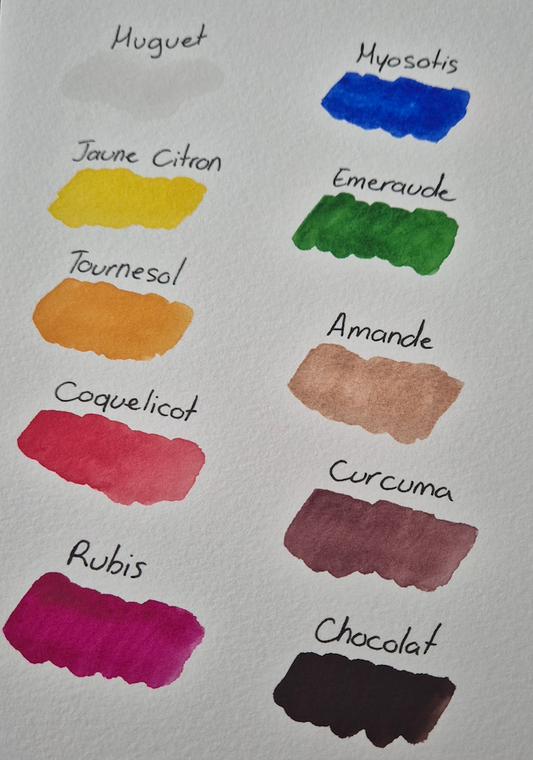 Muguet
Jaune Citron
Tournesol
Coquelicot
Rubis
Myosotis
Emeraude
Amande
Curcuma
Chocolat